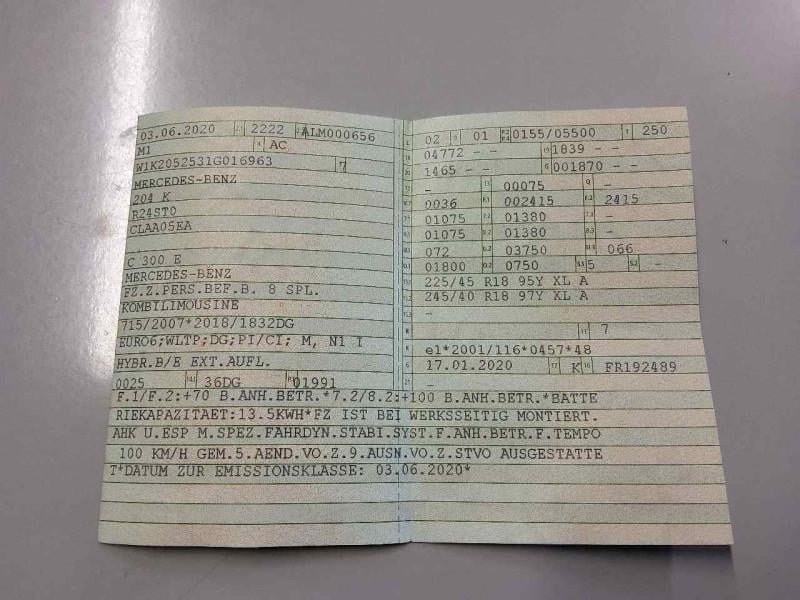 03.06.2020 2222 ALM000656
M1 AC
W1K2052531G016963 7
MERCEDES-BENZ
204 K
R24ST0
CLAA05EA
C 300 E
MERCEDES-BENZ
FZ.Z.PERS.BEF.B. 8 SPL.
KOMBILIMOUSINE
715/2007*2018/1832DG
EURO6;WLTP;DG;PI/CI; M, N1 I
HYBR.B/E EXT.AUFL.
0025 36DG 01991
02 01 0155/05500 250
04772 - - 1839 - -
1465 - - 001870 - -
- 00075 -
0036 002415 2415
01075 01380 -
01075 01380 -
072 03750 066
01800 0750 5 -
225/45 R18 95Y XL A
245/40 R18 97Y XL A
-
7
e1*2001/116*0457*48
17.01.2020 K FR192489
-
F.1/F.2:+70 B.ANH.BETR.*7.2/8.2:+100 B.ANH.BETR.*BATTE
RIEKAPAZITAET:13.5KWH*FZ IST BEI WERKSSEITIG MONTIERT.
AHK U.ESP M.SPEZ.FAHRDYN.STABI.SYST.F.ANH.BETR.F.TEMPO
100 KM/H GEM.5.AEND.VO.Z.9.AUSN.VO.Z.STVO AUSGESTATTE
T*DATUM ZUR EMISSIONSKLASSE: 03.06.2020*